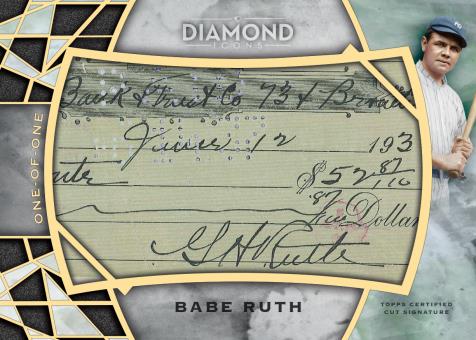 DIAMOND
ICONS
ONE-OF-ONE
Bank & Trust Co 73 & Broad
June 12 193
nter $52 87/100
87 Dollar
G H Ruth
BABE RUTH
TOPPS CERTIFIED
CUT SIGNATURE